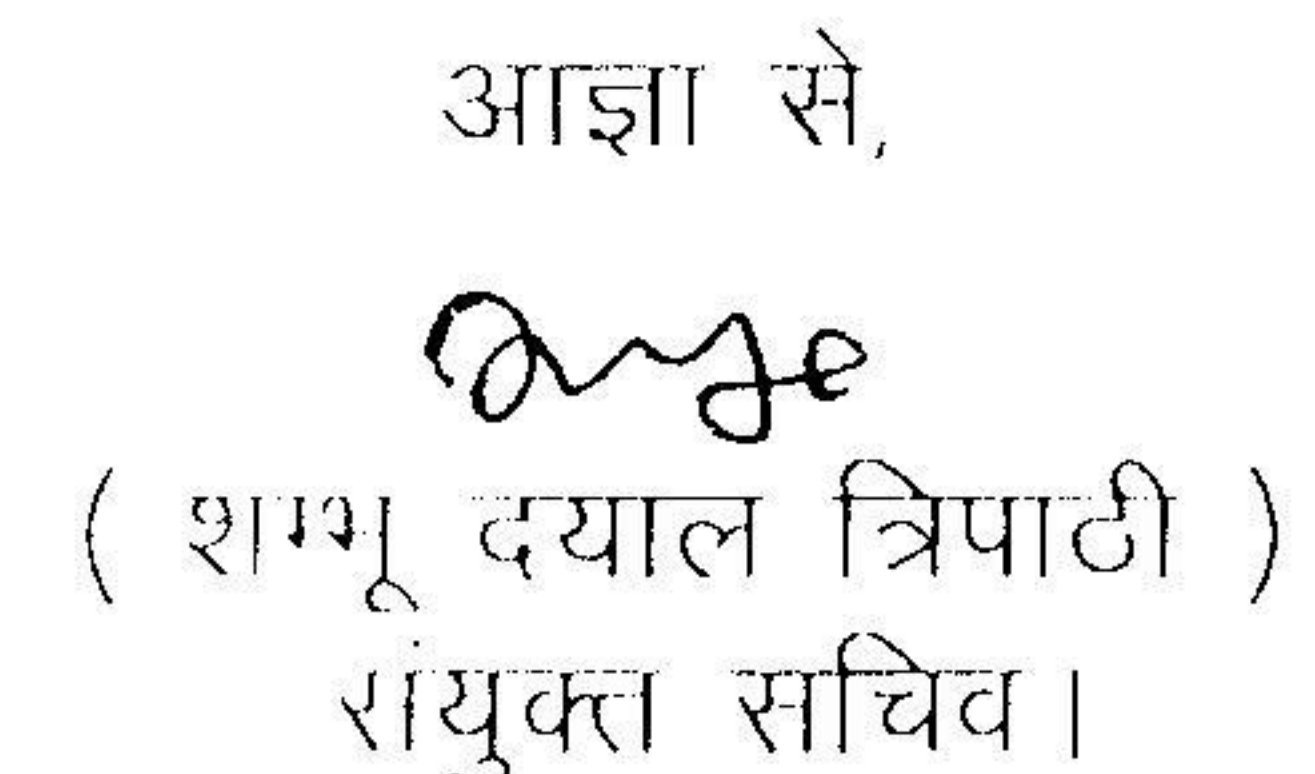 आज्ञा से,
( शम्भू दयाल त्रिपाठी )
संयुक्त सचिव ।